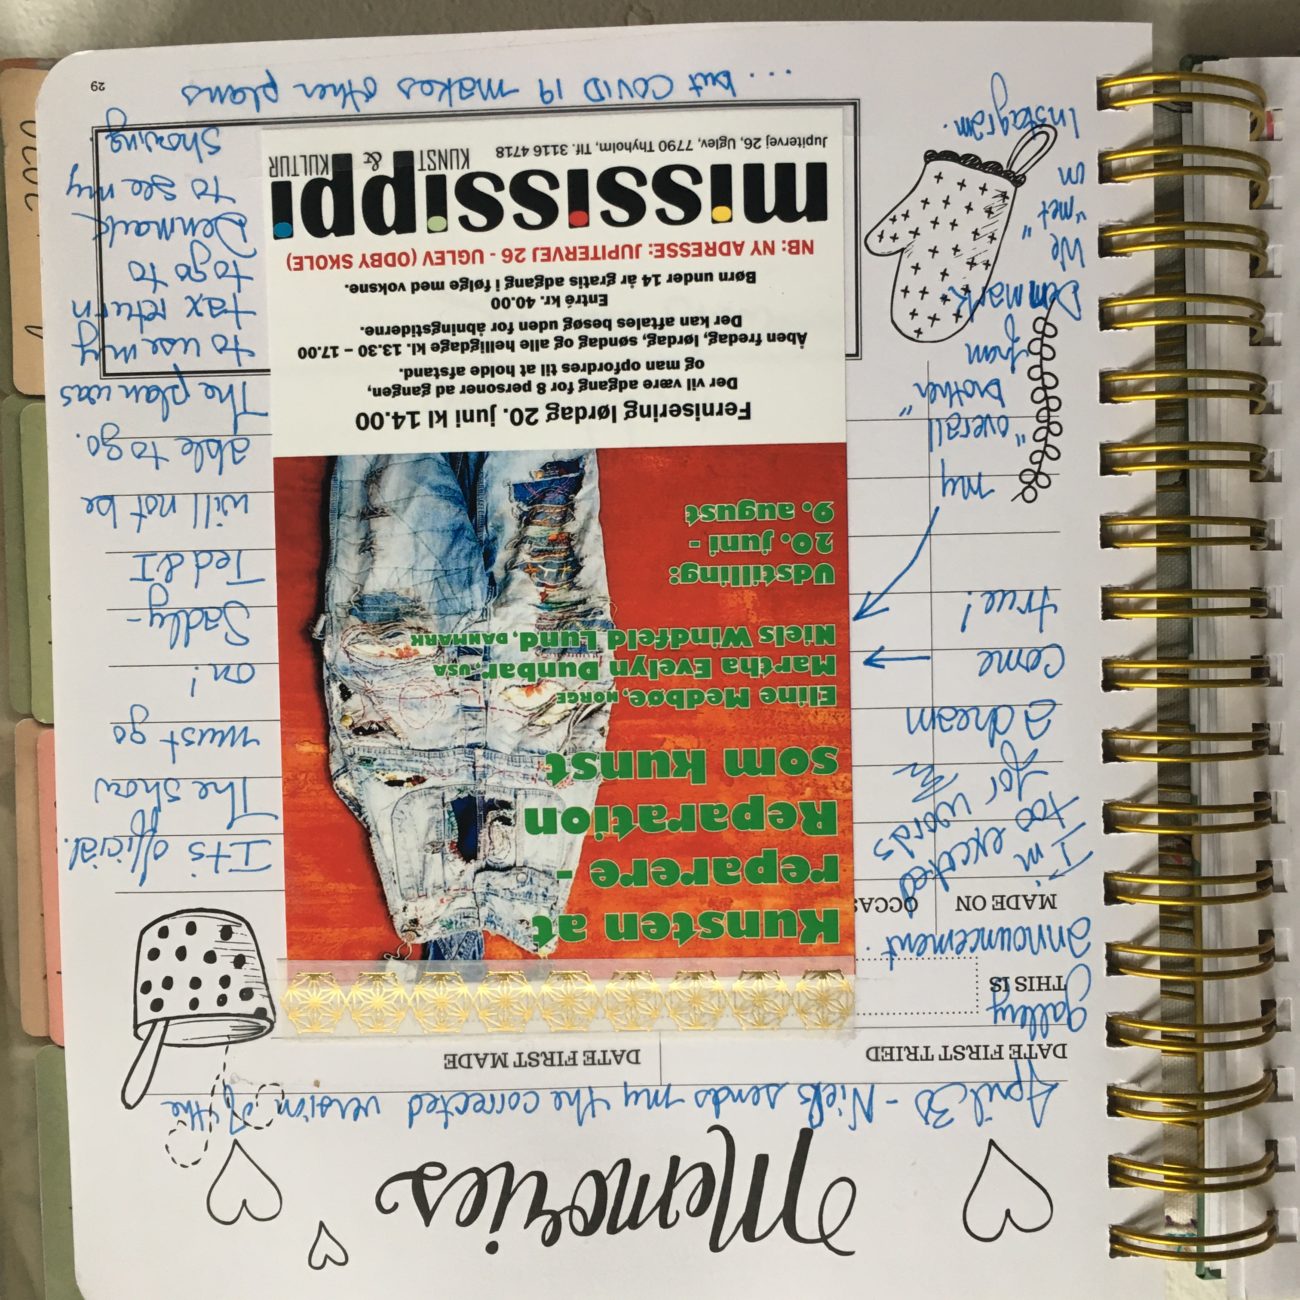 Memories
April 30 - Niels sends my the corrected version of the
gallery
announcement.
DATE FIRST TRIED
DATE FIRST MADE
THIS IS
MADE ON
I'm excited
too
for words
a dream
come
true!
my
"overall
brother"
from
Denmark
We
"met"
on
Instagram.
Kunsten at
reparere -
Reparation
som kunst
Eline Medbøe, NORGE
Martha Evelyn Dunbar, USA
Niels Windfeld Lund, DANMARK
Udstilling:
20. juni -
9. august
Fernisering lørdag 20. juni kl 14.00
Der vil være adgang for 8 personer ad gangen,
og man opfordres til at holde afstand.
Åben fredag, lørdag, søndag og alle helligdage kl. 13.30 – 17.00
Der kan aftales besøg uden for åbningstiderne.
Entré kr. 40.00
Børn under 14 år gratis adgang i følge med voksne.
NB: NY ADRESSE: JUPITERVEJ 26 - UGLEV (ODBY SKOLE)
mississippi
KUNST & KULTUR
Jupitervej 26, Uglev, 7790 Thyholm, Tlf. 3116 4718
It's official.
The show
must go
on!
Sadly -
Ted & I
will not be
able to go.
The plan was
to use my
tax return
to go to
Denmark
to see my
showing.
... but COVID 19 makes other plans
29